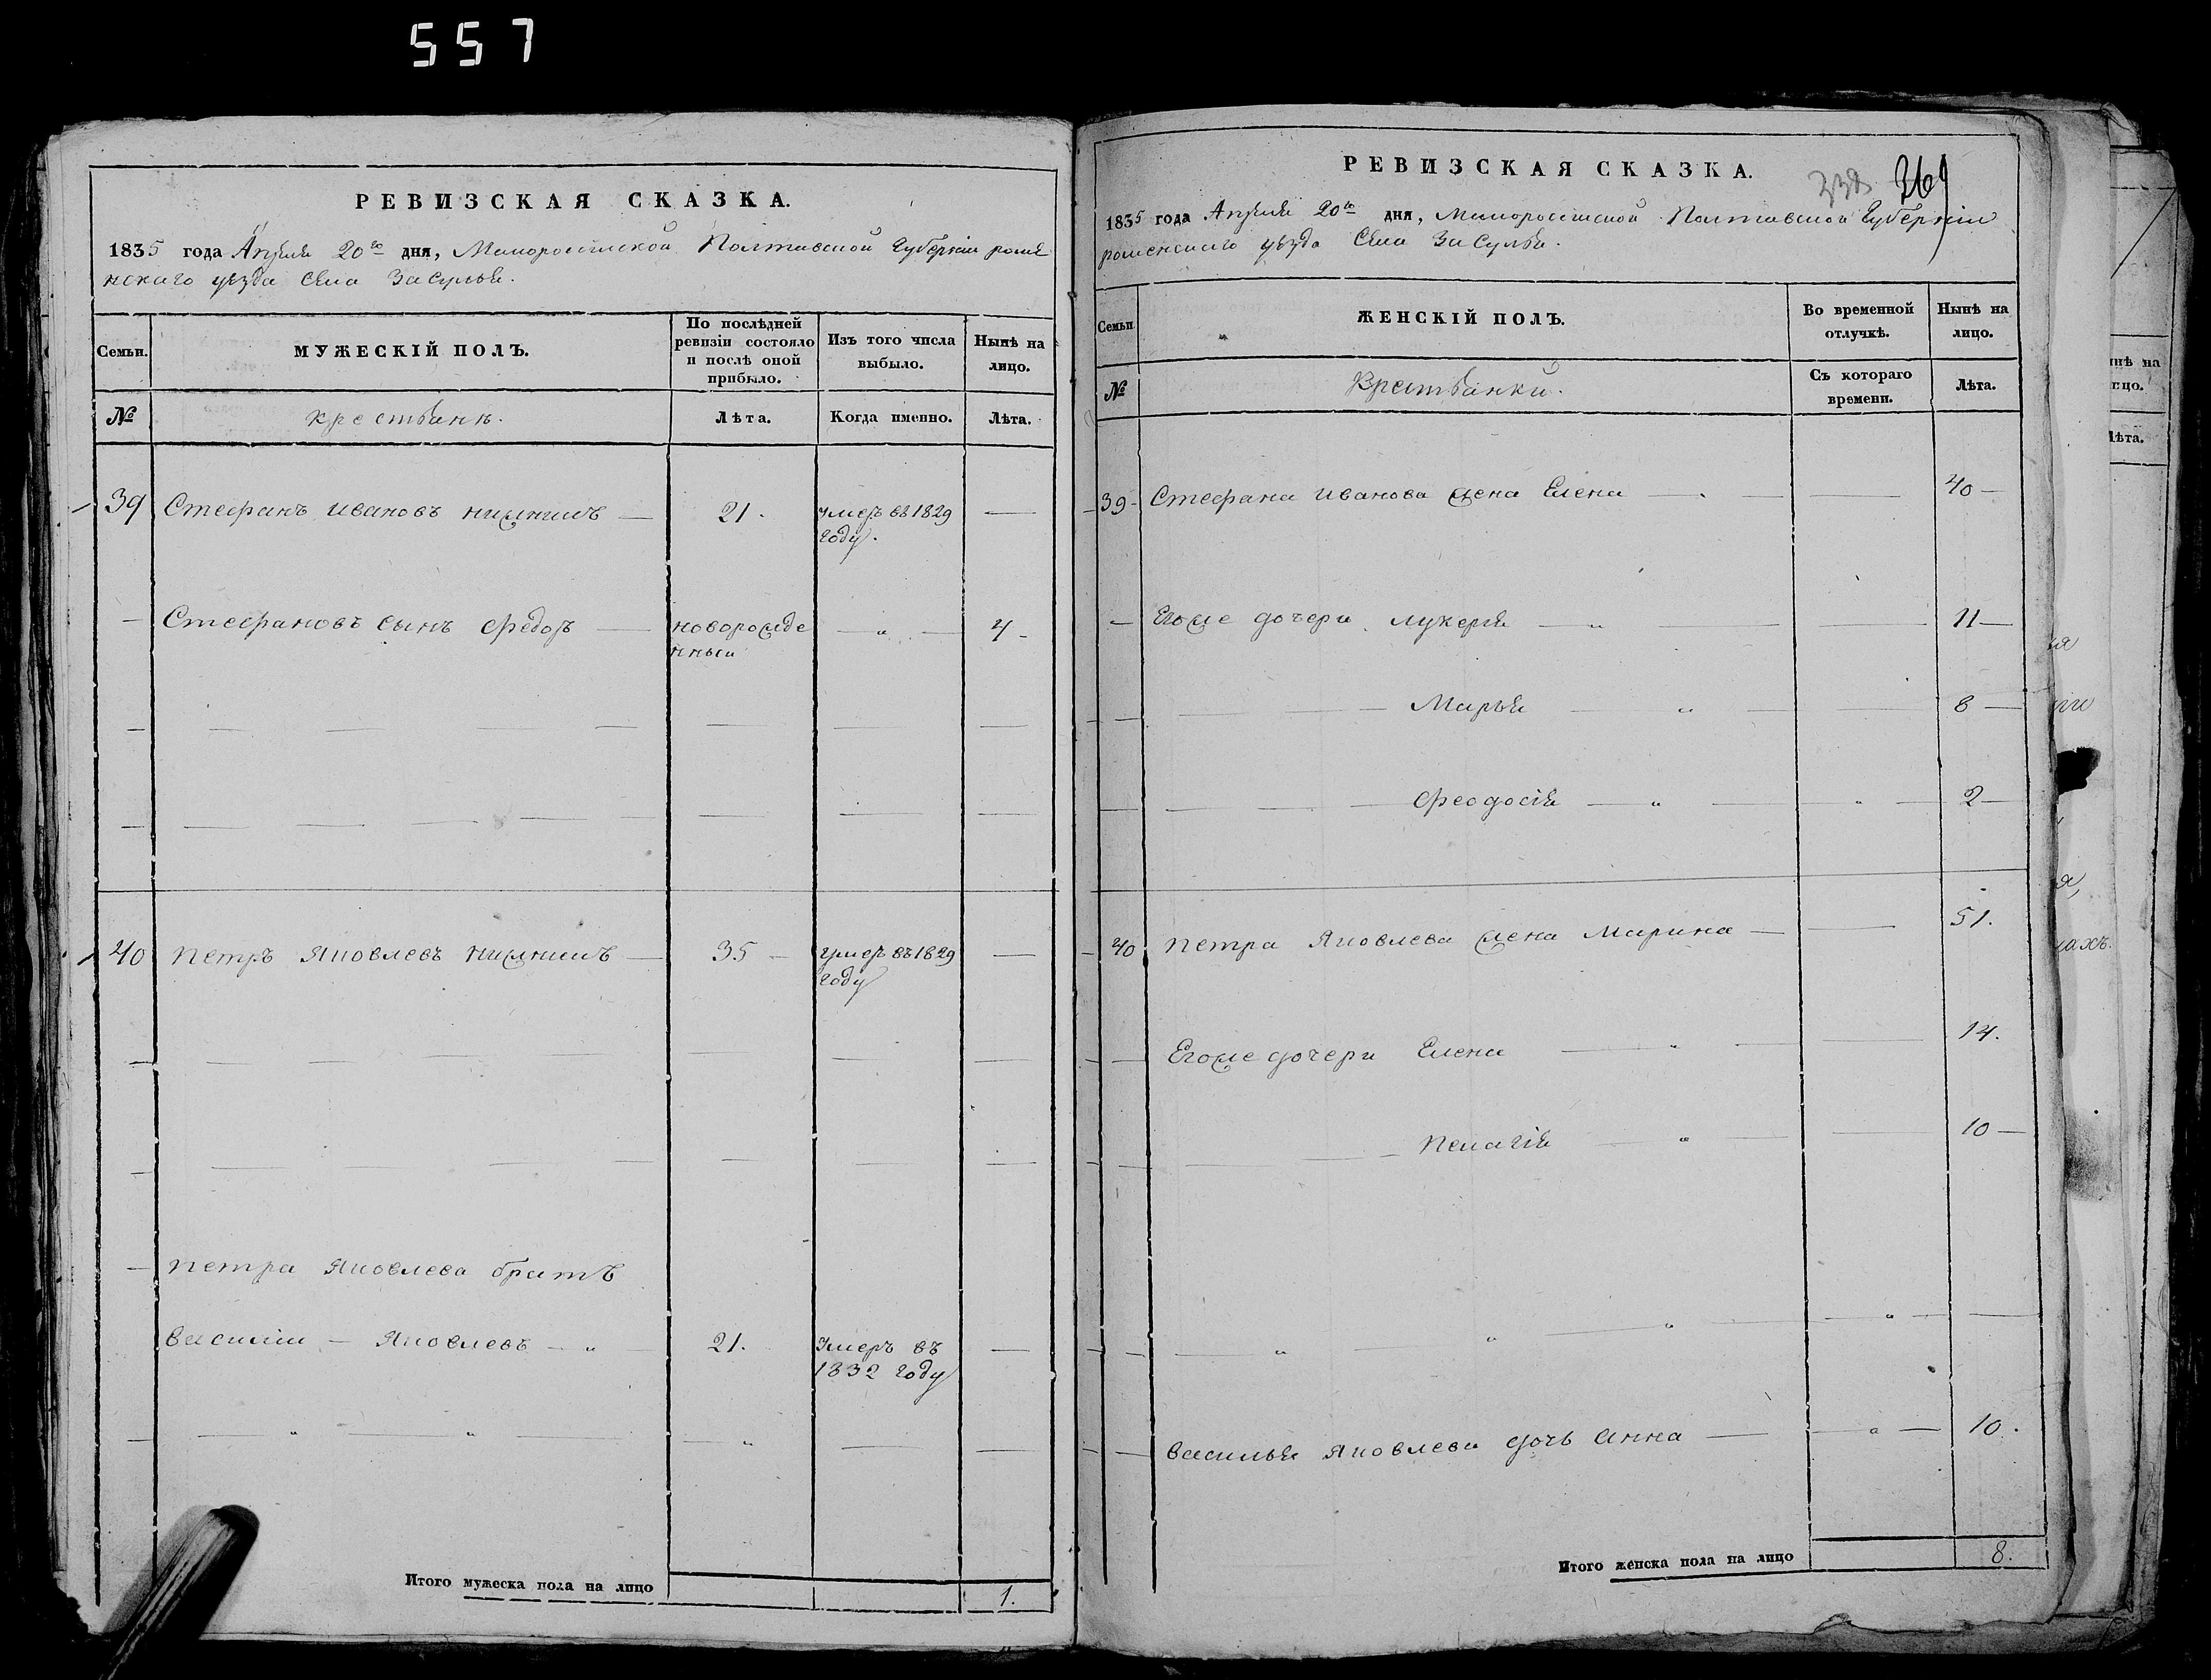 557
РЕВИЗСКАЯ СКАЗКА.
1835 года Апреля 20го дня, Малороссійской Полтавской Губерніи роме
нскаго уезда села Засулья.
Семьи.
МУЖЕСКІЙ ПОЛЪ.
По послѣдней ревизіи состояло и послѣ оной прибыло.
Изъ того числа выбыло.
Нынѣ на лицо.
№
крестьянъ.
Лѣта.
Когда именно.
Лѣта.
39 Стефанъ Ивановъ 21. умеръ въ 1829
году.
Стефановъ сынъ Федоръ новорожде 4
нный
40 Петръ Яковлевъ 35 умеръ въ 1829
году
Петра Яковлева братъ
Василий Яковлевъ 21. умеръ въ
1832 году
Итого мужеска пола на лицо 1.
РЕВИЗСКАЯ СКАЗКА.
338 369
1835 года Апреля 20го дня, Малороссійской Полтавской Губерніи
роменскаго уезда села Засулья.
Семьи
ЖЕНСКІЙ ПОЛЪ.
Во временной отлучкѣ.
Нынѣ на лицо.
№
Крестьянки.
Съ котораго времени.
Лѣта.
39 Стефана Иванова жена Елена 40
Егоже дочери Лукерья 11
Марья 8
Феодосія 2
40 Петра Яковлева жена Марина 51.
Егоже дочери Елена 14.
Пелагія 10
Василья Яковлева дочь Анна 10.
Итого женска пола на лицо 8.